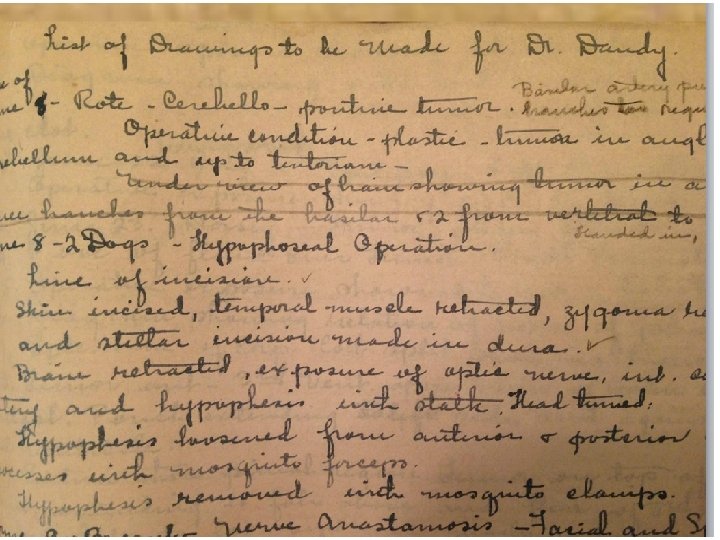 List of Drawings to be Made for Dr. Dandy.
of
8 - Rote - Cerebello - pontine tumor. Basilar artery
branches too
Operative condition - plastic - tumor in
and up to tentorium -
Under view of brain showing tumor in a
branches from the basilar & 2 from vertebral to
Handed in,
8 - 2 Dogs - Hypophoseal Operation.
Line of incision ✓
Skin incised, temporal muscle retracted, zygoma
and stellar incision made in dura. ✓
Brain retracted, exposure of optic nerve, int.
and hypophesis with stalk, Head turned.
Hypophesis loosened from anterior & posterior
with mosquito forceps.
Hypophesis removed with mosquito clamps.
Nerve Anastamosis - Facial and